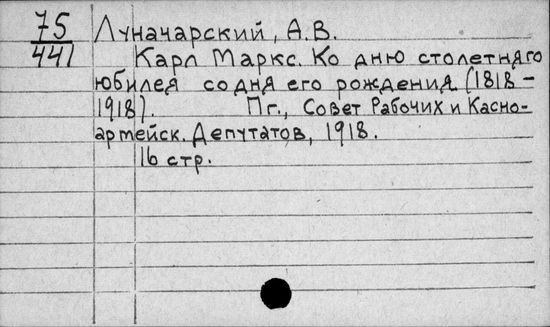 75 Луначарский, А.В.
441 Карл Маркс. Ко дню столетняго
юбилея со дня его рождения (1818-
1918). Пг., Совет Рабочих и Касно-
армейск. Депутатов, 1918.
16 стр.